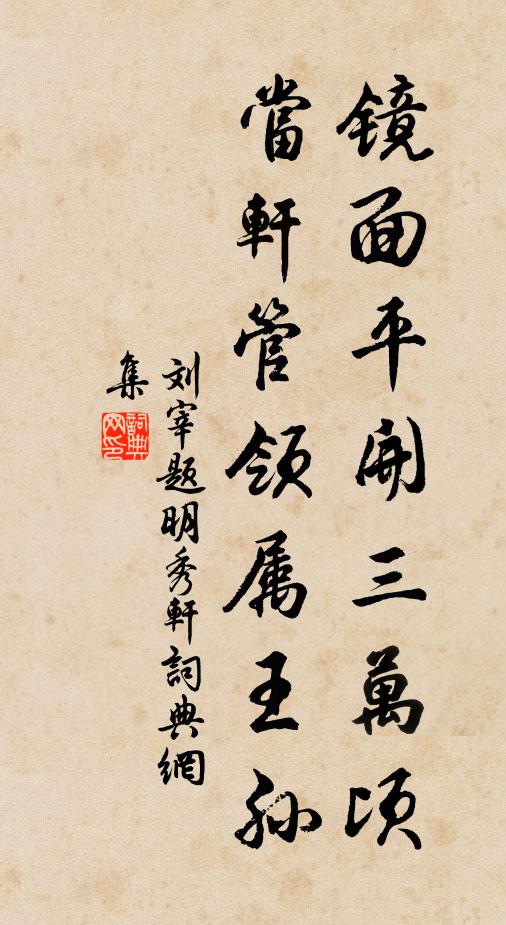 鏡面平開三萬頃
當軒管領属王孫
刘宰題明秀軒詞典網
集
詞典网印